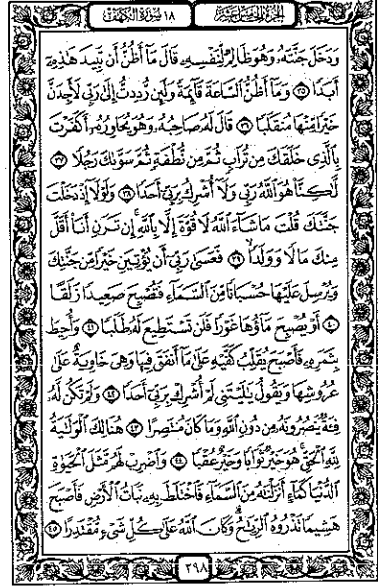 الجزء الخامس عشر ١٨ سورة الكهف
وَدَخَلَ جَنَّتَهُۥ وَهُوَ ظَالِمٌ لِّنَفْسِهِۦ قَالَ مَآ أَظُنُّ أَن تَبِيدَ هَٰذِهِۦٓ
أَبَدًا ۝٣٥ وَمَآ أَظُنُّ ٱلسَّاعَةَ قَآئِمَةً وَلَئِن رُّدِدتُّ إِلَىٰ رَبِّى لَأَجِدَنَّ
خَيْرًا مِّنْهَا مُنقَلَبًا ۝٣٦ قَالَ لَهُۥ صَاحِبُهُۥ وَهُوَ يُحَاوِرُهُۥٓ أَكَفَرْتَ
بِٱلَّذِى خَلَقَكَ مِن تُرَابٍ ثُمَّ مِن نُّطْفَةٍ ثُمَّ سَوَّىٰكَ رَجُلًا ۝٣٧
لَّٰكِنَّا۠ هُوَ ٱللَّهُ رَبِّى وَلَآ أُشْرِكُ بِرَبِّىٓ أَحَدًا ۝٣٨ وَلَوْلَآ إِذْ دَخَلْتَ
جَنَّتَكَ قُلْتَ مَا شَآءَ ٱللَّهُ لَا قُوَّةَ إِلَّا بِٱللَّهِ إِن تَرَنِ أَنَا۠ أَقَلَّ
مِنكَ مَالًا وَوَلَدًا ۝٣٩ فَعَسَىٰ رَبِّىٓ أَن يُؤْتِيَنِ خَيْرًا مِّن جَنَّتِكَ
وَيُرْسِلَ عَلَيْهَا حُسْبَانًا مِّنَ ٱلسَّمَآءِ فَتُصْبِحَ صَعِيدًا زَلَقًا
۝٤٠ أَوْ يُصْبِحَ مَآؤُهَا غَوْرًا فَلَن تَسْتَطِيعَ لَهُۥ طَلَبًا ۝٤١ وَأُحِيطَ
بِثَمَرِهِۦ فَأَصْبَحَ يُقَلِّبُ كَفَّيْهِ عَلَىٰ مَآ أَنفَقَ فِيهَا وَهِىَ خَاوِيَةٌ عَلَىٰ
عُرُوشِهَا وَيَقُولُ يَٰلَيْتَنِى لَمْ أُشْرِكْ بِرَبِّىٓ أَحَدًا ۝٤٢ وَلَمْ تَكُن لَّهُۥ
فِئَةٌ يَنصُرُونَهُۥ مِن دُونِ ٱللَّهِ وَمَا كَانَ مُنتَصِرًا ۝٤٣ هُنَالِكَ ٱلْوَلَٰيَةُ
لِلَّهِ ٱلْحَقِّ هُوَ خَيْرٌ ثَوَابًا وَخَيْرٌ عُقْبًا ۝٤٤ وَٱضْرِبْ لَهُم مَّثَلَ ٱلْحَيَوٰةِ
ٱلدُّنْيَا كَمَآءٍ أَنزَلْنَٰهُ مِنَ ٱلسَّمَآءِ فَٱخْتَلَطَ بِهِۦ نَبَاتُ ٱلْأَرْضِ فَأَصْبَحَ
هَشِيمًا تَذْرُوهُ ٱلرِّيَٰحُ وَكَانَ ٱللَّهُ عَلَىٰ كُلِّ شَىْءٍ مُّقْتَدِرًا ۝٤٥
٢٩٨